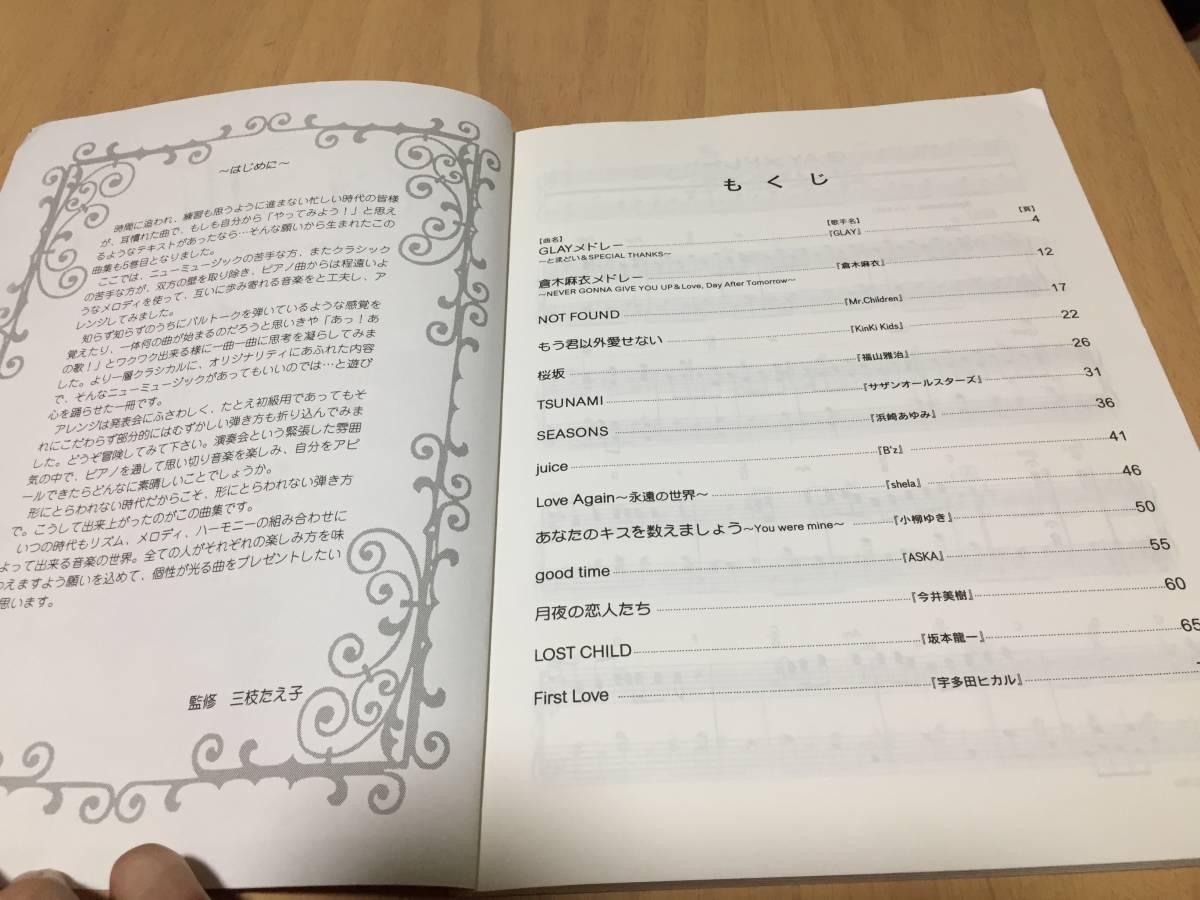 ～はじめに～
時間に追われ、練習も思うように進まない忙しい時代の皆様
が、耳慣れた曲で、もしも自分から「やってみよう！」と思え
るようなテキストがあったなら…そんな願いから生まれたこの
曲集も5巻目となりました。
ここでは、ニューミュージックの苦手な方、またクラシック
の苦手な方が、双方の壁を取り除き、ピアノ曲からは程遠いよ
うなメロディを使って、互いに歩み寄れる音楽をと工夫し、ア
レンジしてみました。
知らず知らずのうちにバルトークを弾いているような感覚を
覚えたり、一体何の曲が始まるのだろうと思いきや「あっ！あ
の歌！」とワクワク出来る様に一曲一曲に思考を凝らしてみま
した。より一層クラシカルに、オリジナリティにあふれた内容
で、そんなニューミュージックがあってもいいのでは…と遊び
心を踊らせた一冊です。
アレンジは発表会にふさわしく、たとえ初級用であってもそ
れにこだわらず部分的にはむずかしい弾き方も折り込んでみま
した。どうぞ冒険してみて下さい。演奏会という緊張した雰囲
気の中で、ピアノを通して思い切り音楽を楽しみ、自分をアピ
ールできたらどんなに素晴しいことでしょうか。
形にとらわれない時代だからこそ、形にとらわれない弾き方
で。こうして出来上がったのがこの曲集です。
いつの時代もリズム、メロディ、ハーモニーの組み合わせに
よって出来る音楽の世界。全ての人がそれぞれの楽しみ方を味
わえますよう願いを込めて、個性が光る曲をプレゼントしたい
思います。
監修 三枝たえ子
もくじ
【曲名】 【歌手名】 【頁】
GLAYメドレー 『GLAY』 4
～とまどい＆SPECIAL THANKS～
倉木麻衣メドレー 『倉木麻衣』 12
～NEVER GONNA GIVE YOU UP＆Love, Day After Tomorrow～
NOT FOUND 『Mr.Children』 17
もう君以外愛せない 『KinKi Kids』 22
桜坂 『福山雅治』 26
TSUNAMI 『サザンオールスターズ』 31
SEASONS 『浜崎あゆみ』 36
juice 『B'z』 41
Love Again～永遠の世界～ 『shela』 46
あなたのキスを数えましょう～You were mine～ 『小柳ゆき』 50
good time 『ASKA』 55
月夜の恋人たち 『今井美樹』 60
LOST CHILD 『坂本龍一』 65
First Love 『宇多田ヒカル』